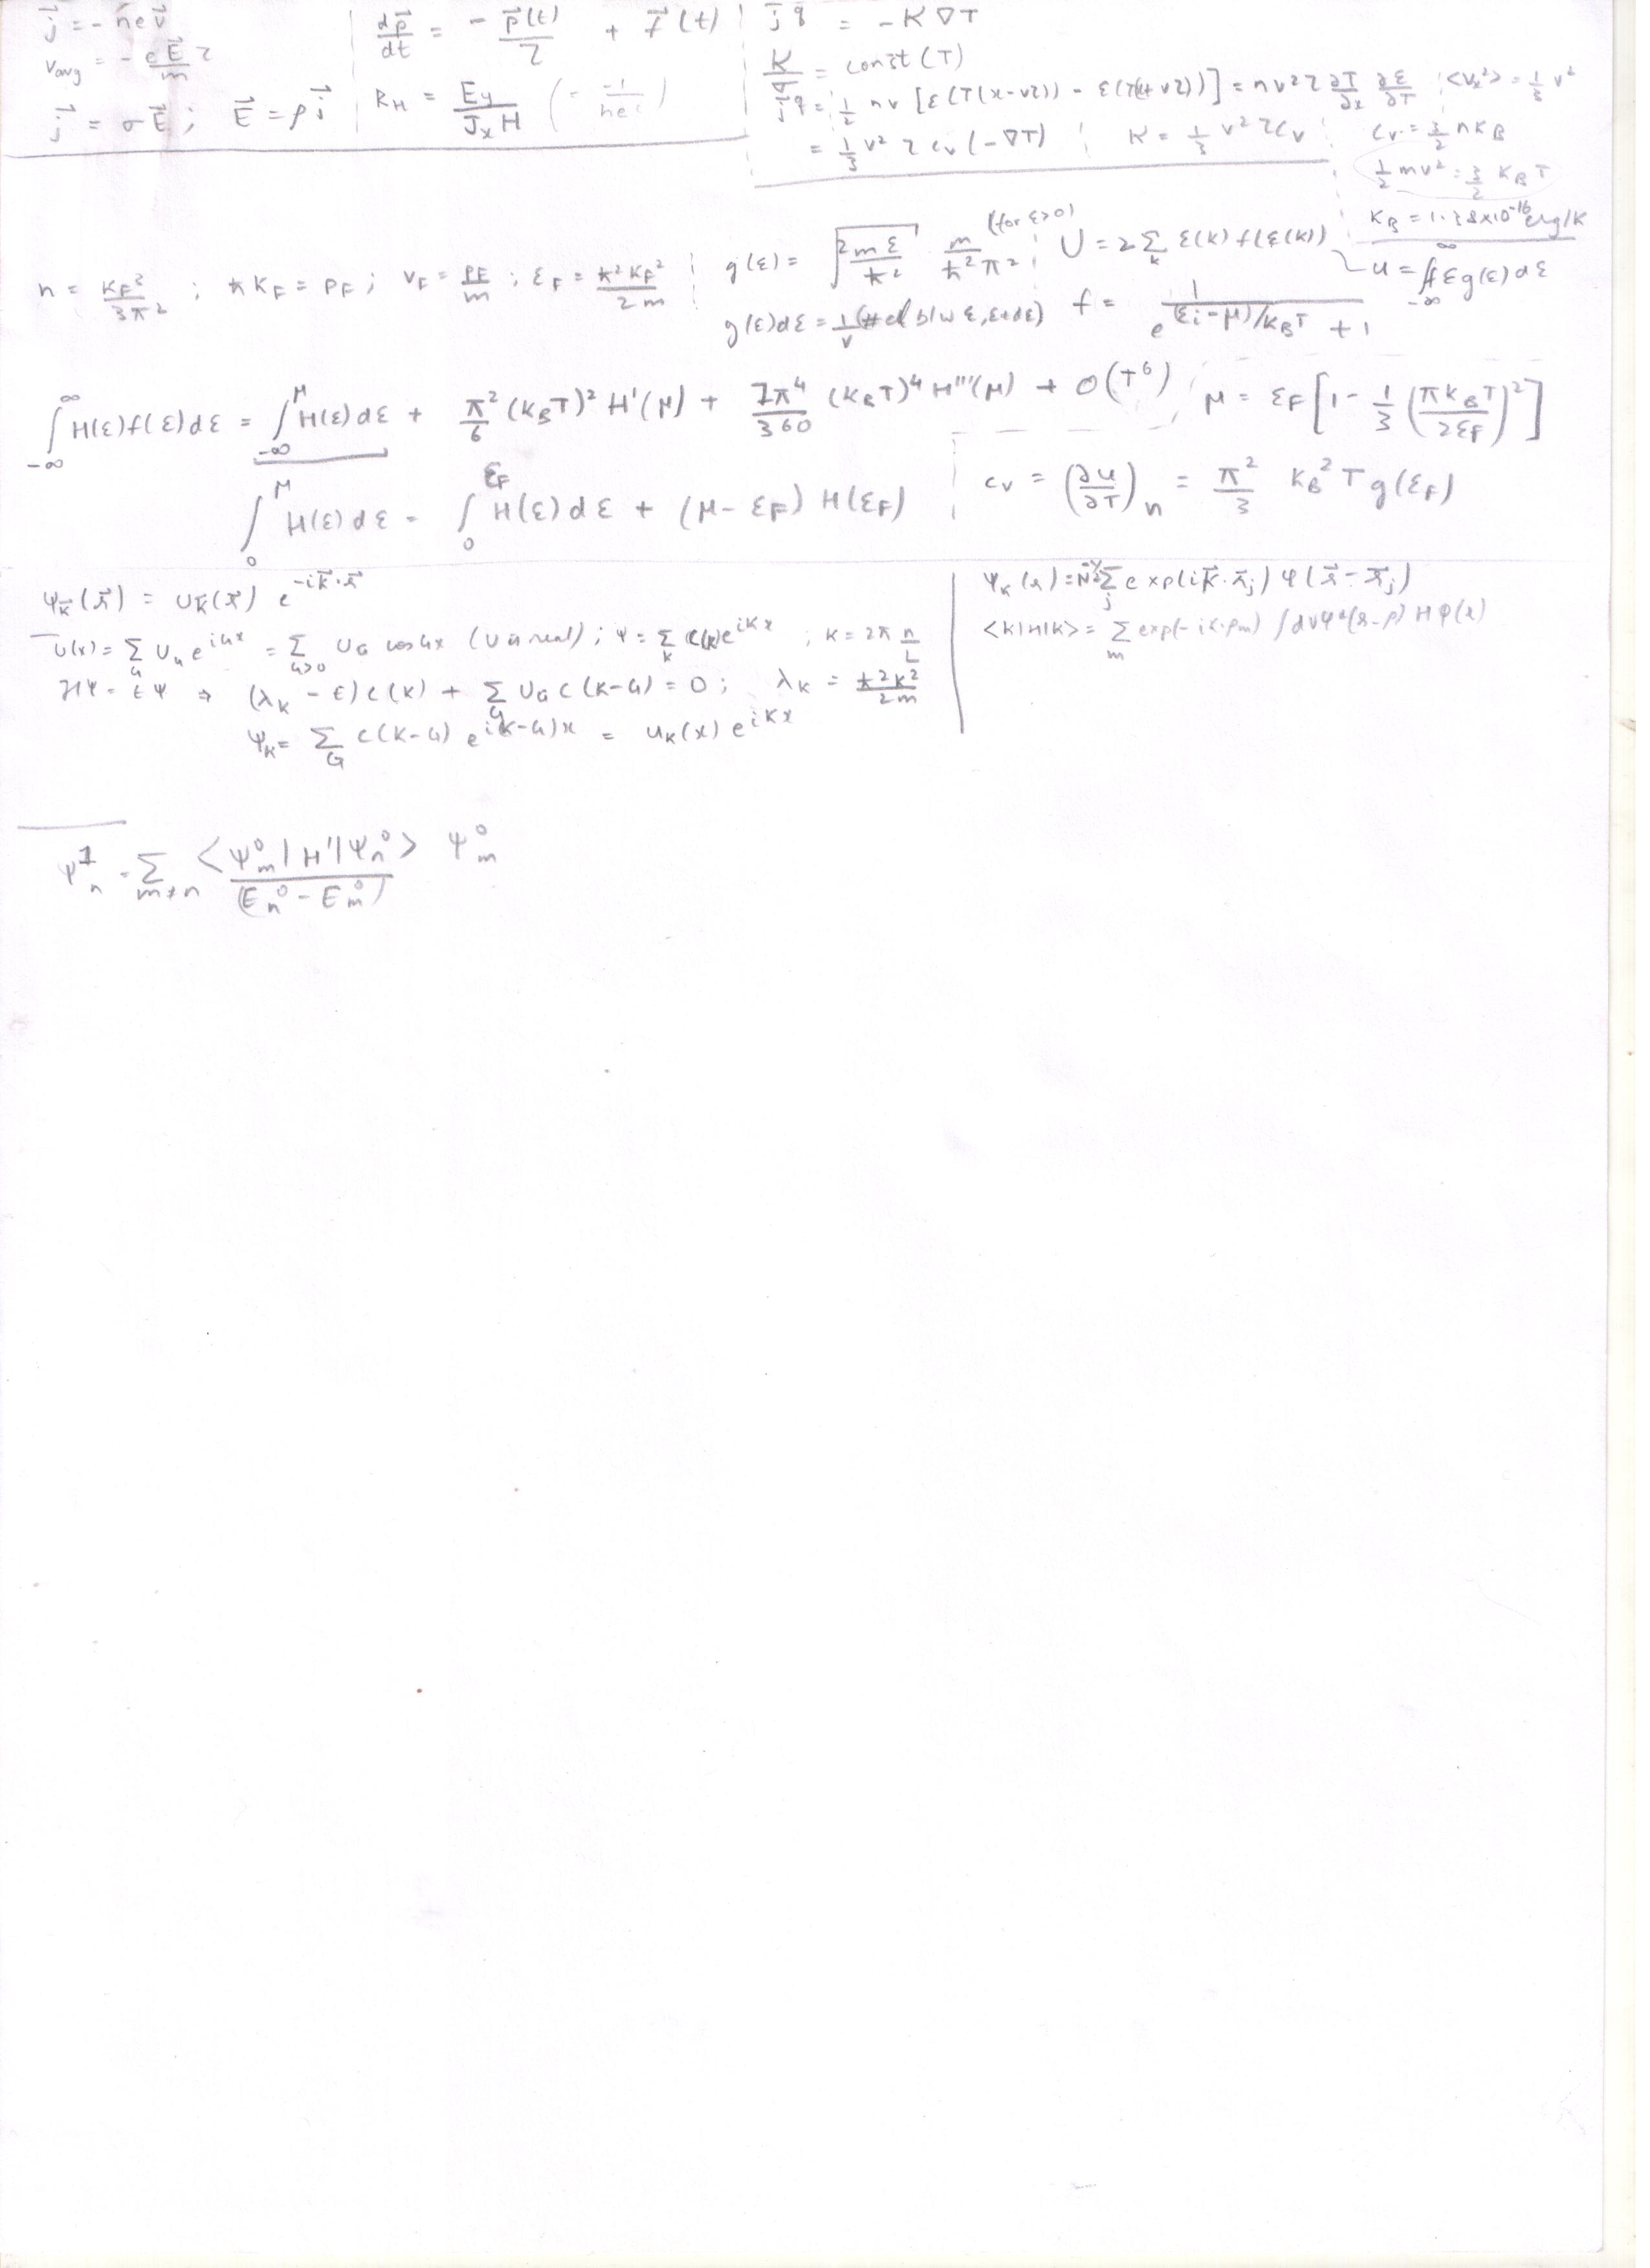 j⃗ = - ne v⃗
v_avg = - eE⃗/m τ
j⃗ = σE⃗ ; E⃗ = ρ j⃗
dp⃗/dt = - p⃗(t)/τ + f⃗(t)
R_H = E_y/(J_x H) (= -1/nec)
j⃗^q = - K ∇T
K/σ = const (T)
j⃗^q = 1/2 nv [ε(T(x-vτ)) - ε(T(x+vτ))] = nv²τ ∂T/∂x ∂ε/∂T ; <v_x²> = 1/3 v²
= 1/3 v² τ c_v (-∇T) ; K = 1/3 v² τ c_v
c_v = 3/2 n K_B
1/2 mv² = 3/2 K_B T
K_B = 1.38x10^-16 erg/K
n = K_F³/3π² ; ħK_F = P_F ; v_F = P_F/m ; ε_F = ħ²K_F²/2m
g(ε) = √(2mε/ħ²) m/ħ²π² (for ε>0) ; U = 2 Σ_k ε(k) f(ε(k))
u = ∫_{-∞}^{∞} f ε g(ε) dε
g(ε)dε = 1/V (# el b/w ε, ε+dε) f = 1/(e^{(εi-μ)/K_BT} + 1)
∫_{-∞}^{∞} H(ε)f(ε)dε = ∫_{-∞}^{μ} H(ε)dε + π²/6 (K_BT)² H'(μ) + 7π⁴/360 (K_BT)⁴ H'''(μ) + O(T⁶) ; μ = ε_F [1 - 1/3 (πK_BT/2ε_F)²]
∫_0^μ H(ε)dε = ∫_0^{ε_F} H(ε)dε + (μ-ε_F) H(ε_F)
c_v = (∂u/∂T)_n = π²/3 K_B² T g(ε_F)
ψ_k⃗(r⃗) = u_k⃗(r⃗) e^{-ik⃗·r⃗}
U(x) = Σ_G U_G e^{iGx} = Σ_{G>0} U_G cos Gx (U is real) ; ψ = Σ_k C(k) e^{ikx} ; k = 2π n/L
Hψ = Eψ ⇒ (λ_k - ε) C(k) + Σ_G U_G C(k-G) = 0 ; λ_k = ħ²k²/2m
ψ_k = Σ_G C(k-G) e^{i(k-G)x} = u_k(x) e^{ikx}
ψ_k(r) = N^{-1/2} Σ_j exp(ik⃗·r⃗_j) φ(r⃗-r⃗_j)
<k|H|k> = Σ_m exp(-ik·ρ_m) ∫dV φ*(r-ρ) H φ(r)
ψ_n^1 = Σ_{m≠n} <ψ_m^0|H'|ψ_n^0>/(E_n^0 - E_m^0) ψ_m^0